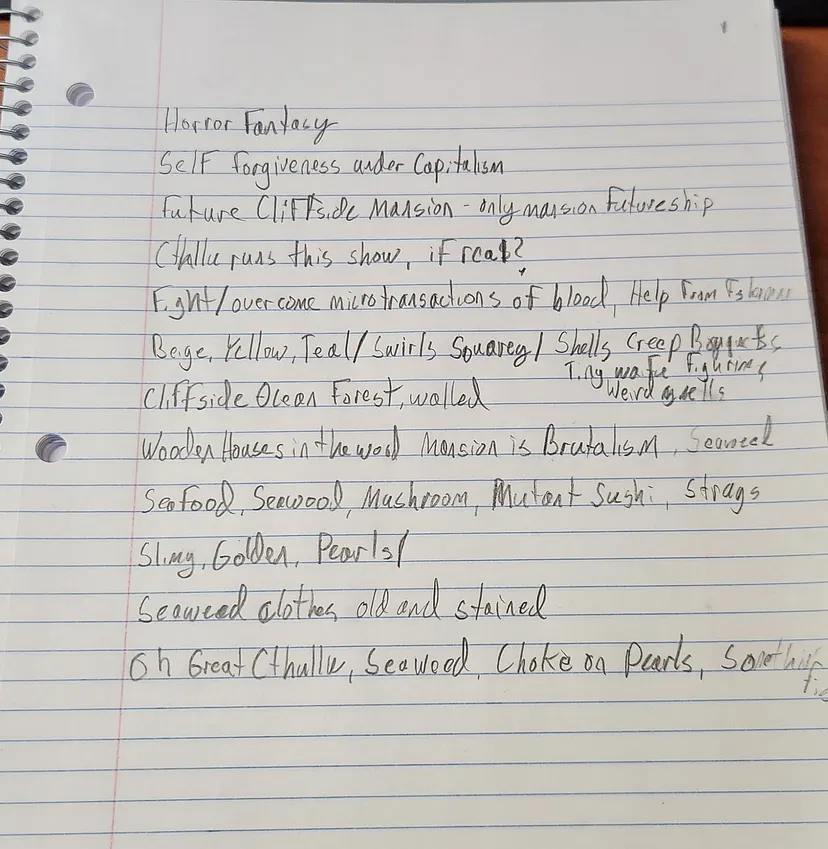 Horror Fantasy
Self forgiveness under Capitalism
Future Cliffside Mansion - only mansion futureship
Cthullu runs this show, if real?
Fight/overcome microtransactions of blood, Help From
Beige, Yellow, Teal/Swirls Squarey/Shells Creep
Tiny
Cliffside Ocean Forest, walled
Weird
Wooden Houses in the wood Mansion is Brutalism, Seaweed
Seafood, Seawood, Mushroom, Mutant Sushi, Strags
Slimy, Golden, Pearls/
Seaweed clothes old and stained
Oh Great Cthullu, Seaweed, Choke on Pearls,